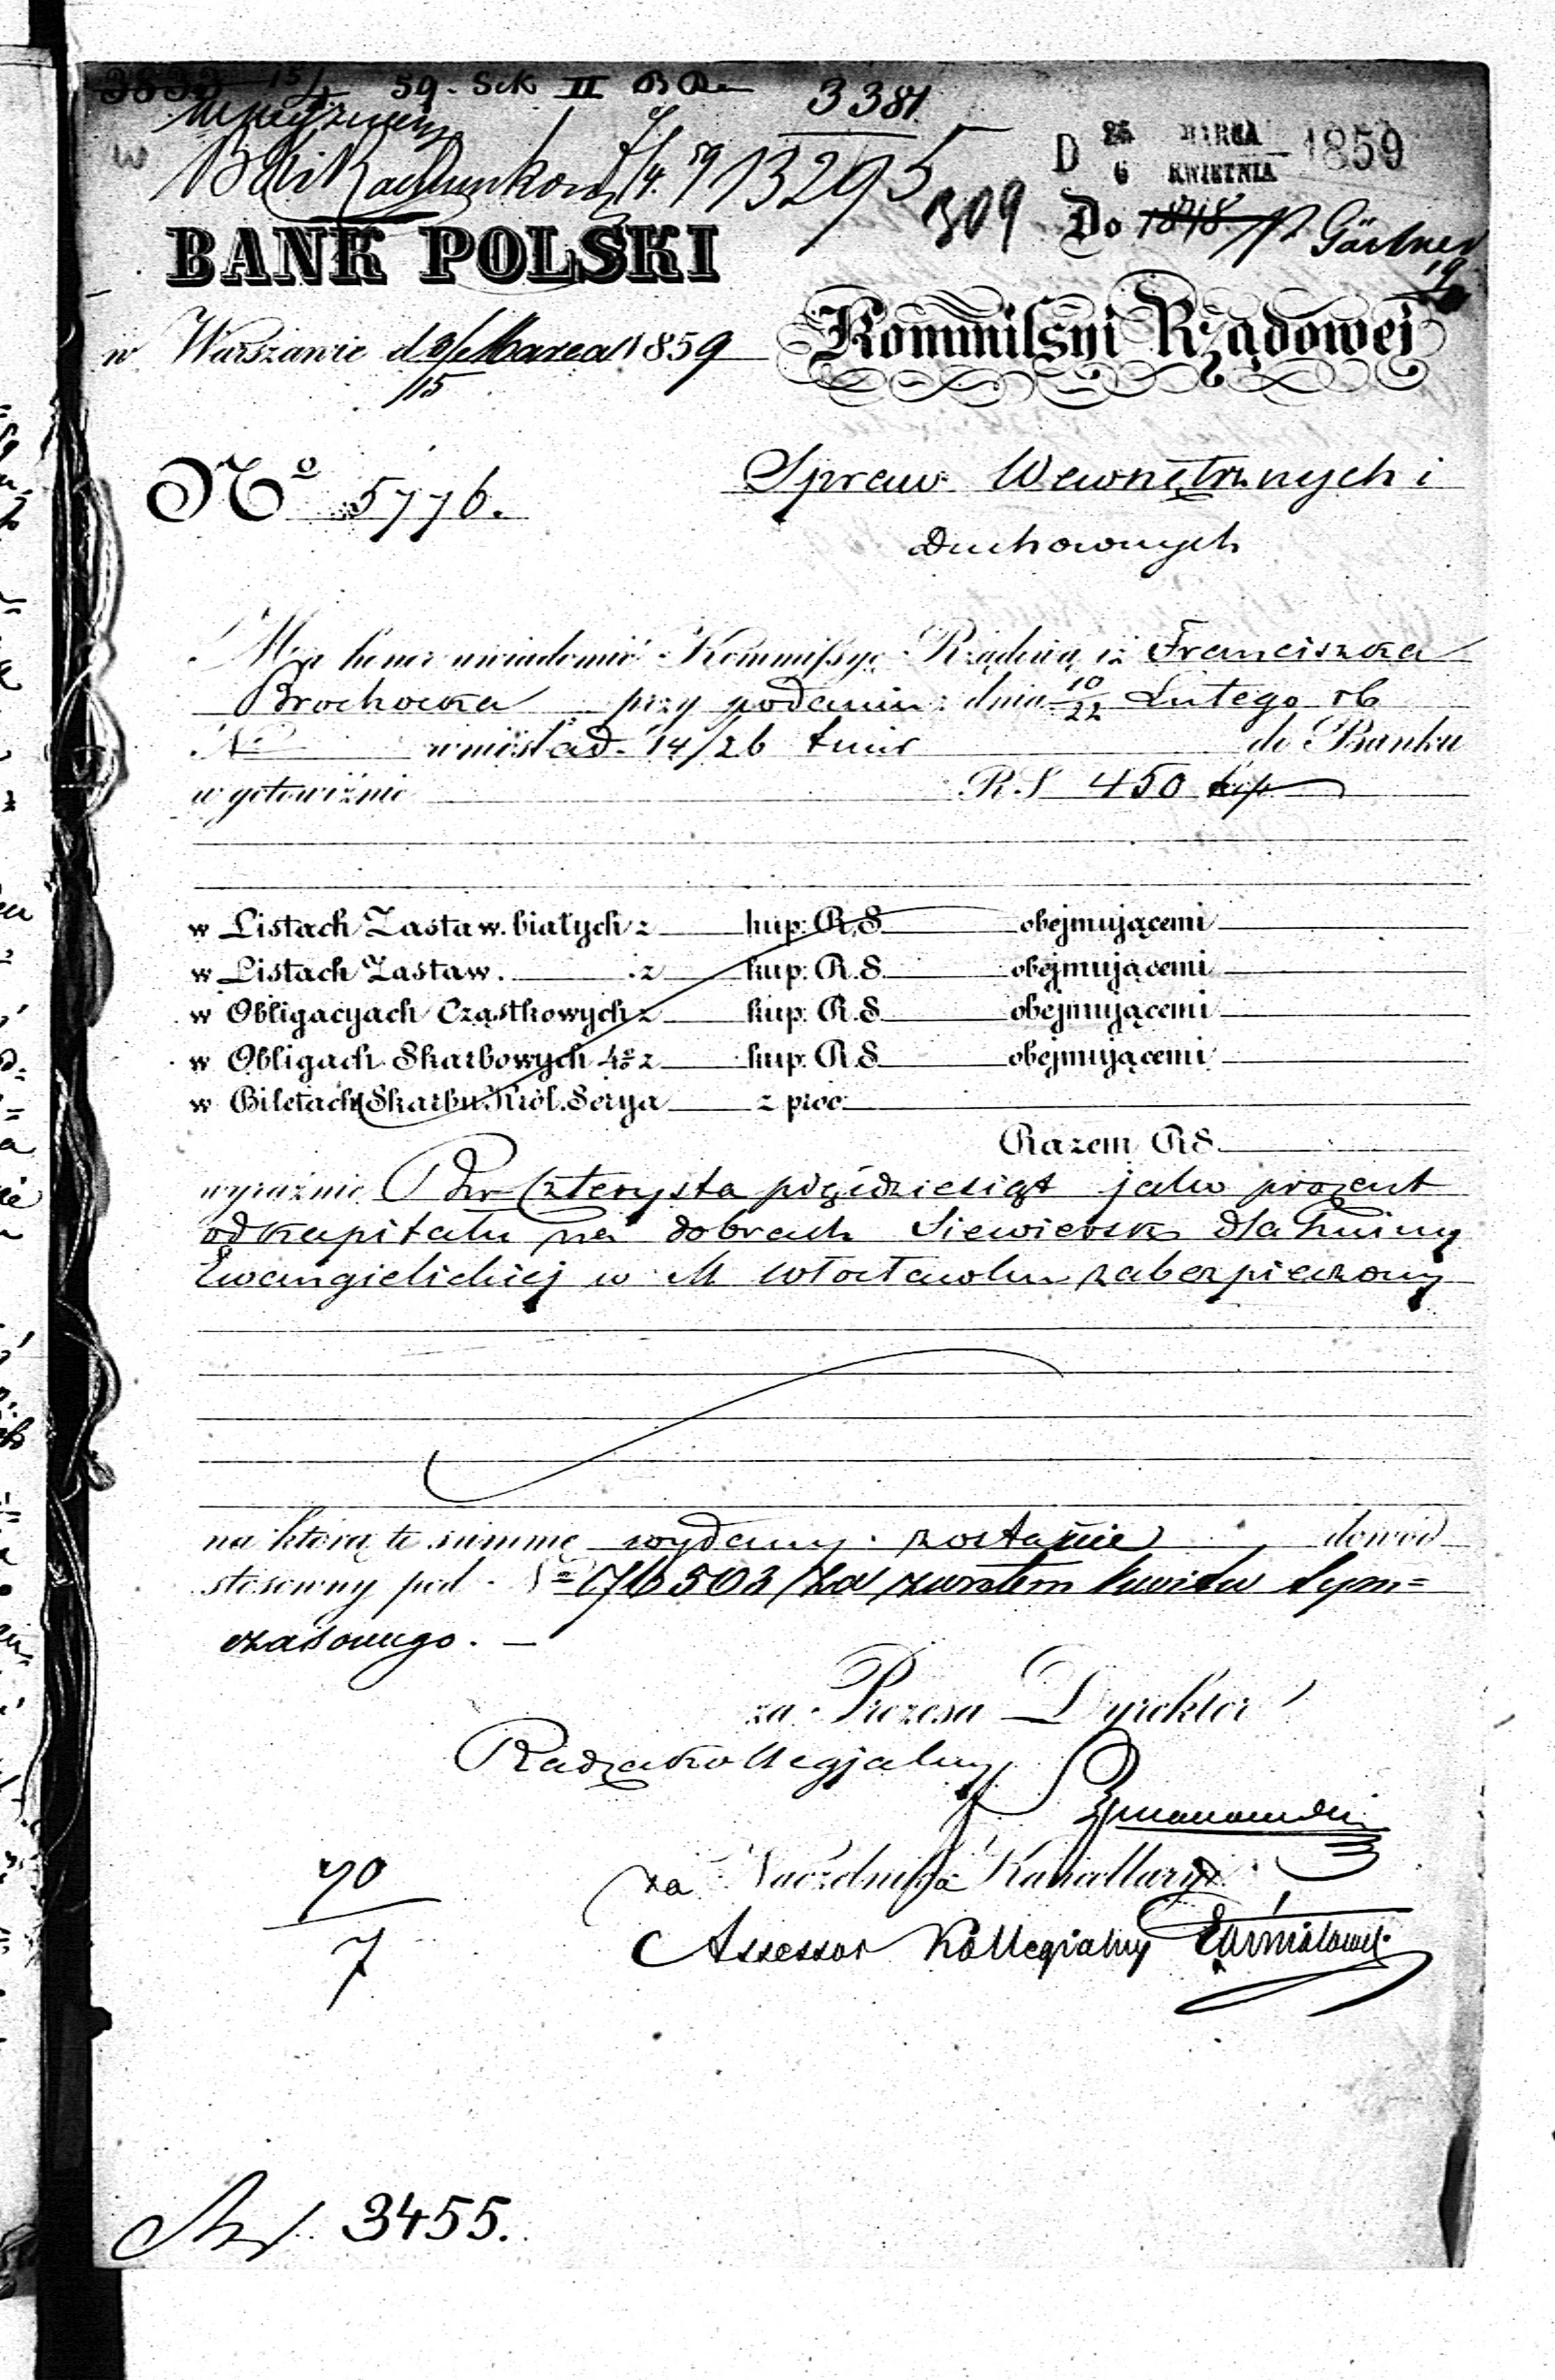 3833 15/4 59. Sek II
3381
13295
D 25 MARCA 1859
6 KWIETNIA
309
Do 1848 P Gärtner
19
BANK POLSKI
Kommissyi Rządowej
w Warszawie d Marca 1859
15
Nº 5776.
Spraw Wewnętrznych i
Duchownych
Ma honor uwiadomić Kommissyę Rządową iż Franciszka
Brochocka przy podaniu dnia 10/22 Lutego rb
No wniósł ad. 14/26 tmr do Banku
w gotowiźnie RS 450 kop
w Listach Zastaw. białych z kup: R.S. obejmującemi
w Listach Zastaw. z kup: R.S. obejmującemi
w Obligacyach Cząstkowych z kup: R.S. obejmującemi
w Obligach Skarbowych 4% z kup: R.S. obejmującemi
w Biletach Skarbu Król. Serya z proc:
Razem RS.
wyraźnie Rsr Czterysta pięćdziesiąt jako procent
od kapitału na dobrach Siewiersk dla Gminy
Ewangielickiej w M Włocławku zabezpieczony
na którą to summę wydany zostanie dowód
stosowny pod Nº 76503 za zwrotem kwitu tym=
czasowego. —
za Prezesa Dyrektor
Radzca Kollegjalny
za Naczelnika Kancellaryi
Assessor Kollegialny
70
7
3455.